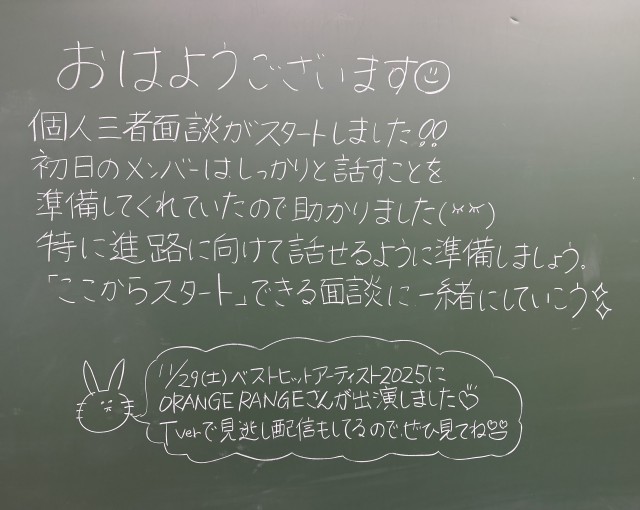 おはようございます
個人三者面談がスタートしました!!
初日のメンバーはしっかりと話すことを
準備してくれていたので助かりました(^^)
特に進路に向けて話せるように準備しましょう。
「ここからスタート」できる面談に一緒にしていこう
11/29(土)ベストヒットアーティスト2025に
ORANGE RANGEさんが出演しました♡
Tverで見逃し配信もしてるのでぜひ見てね